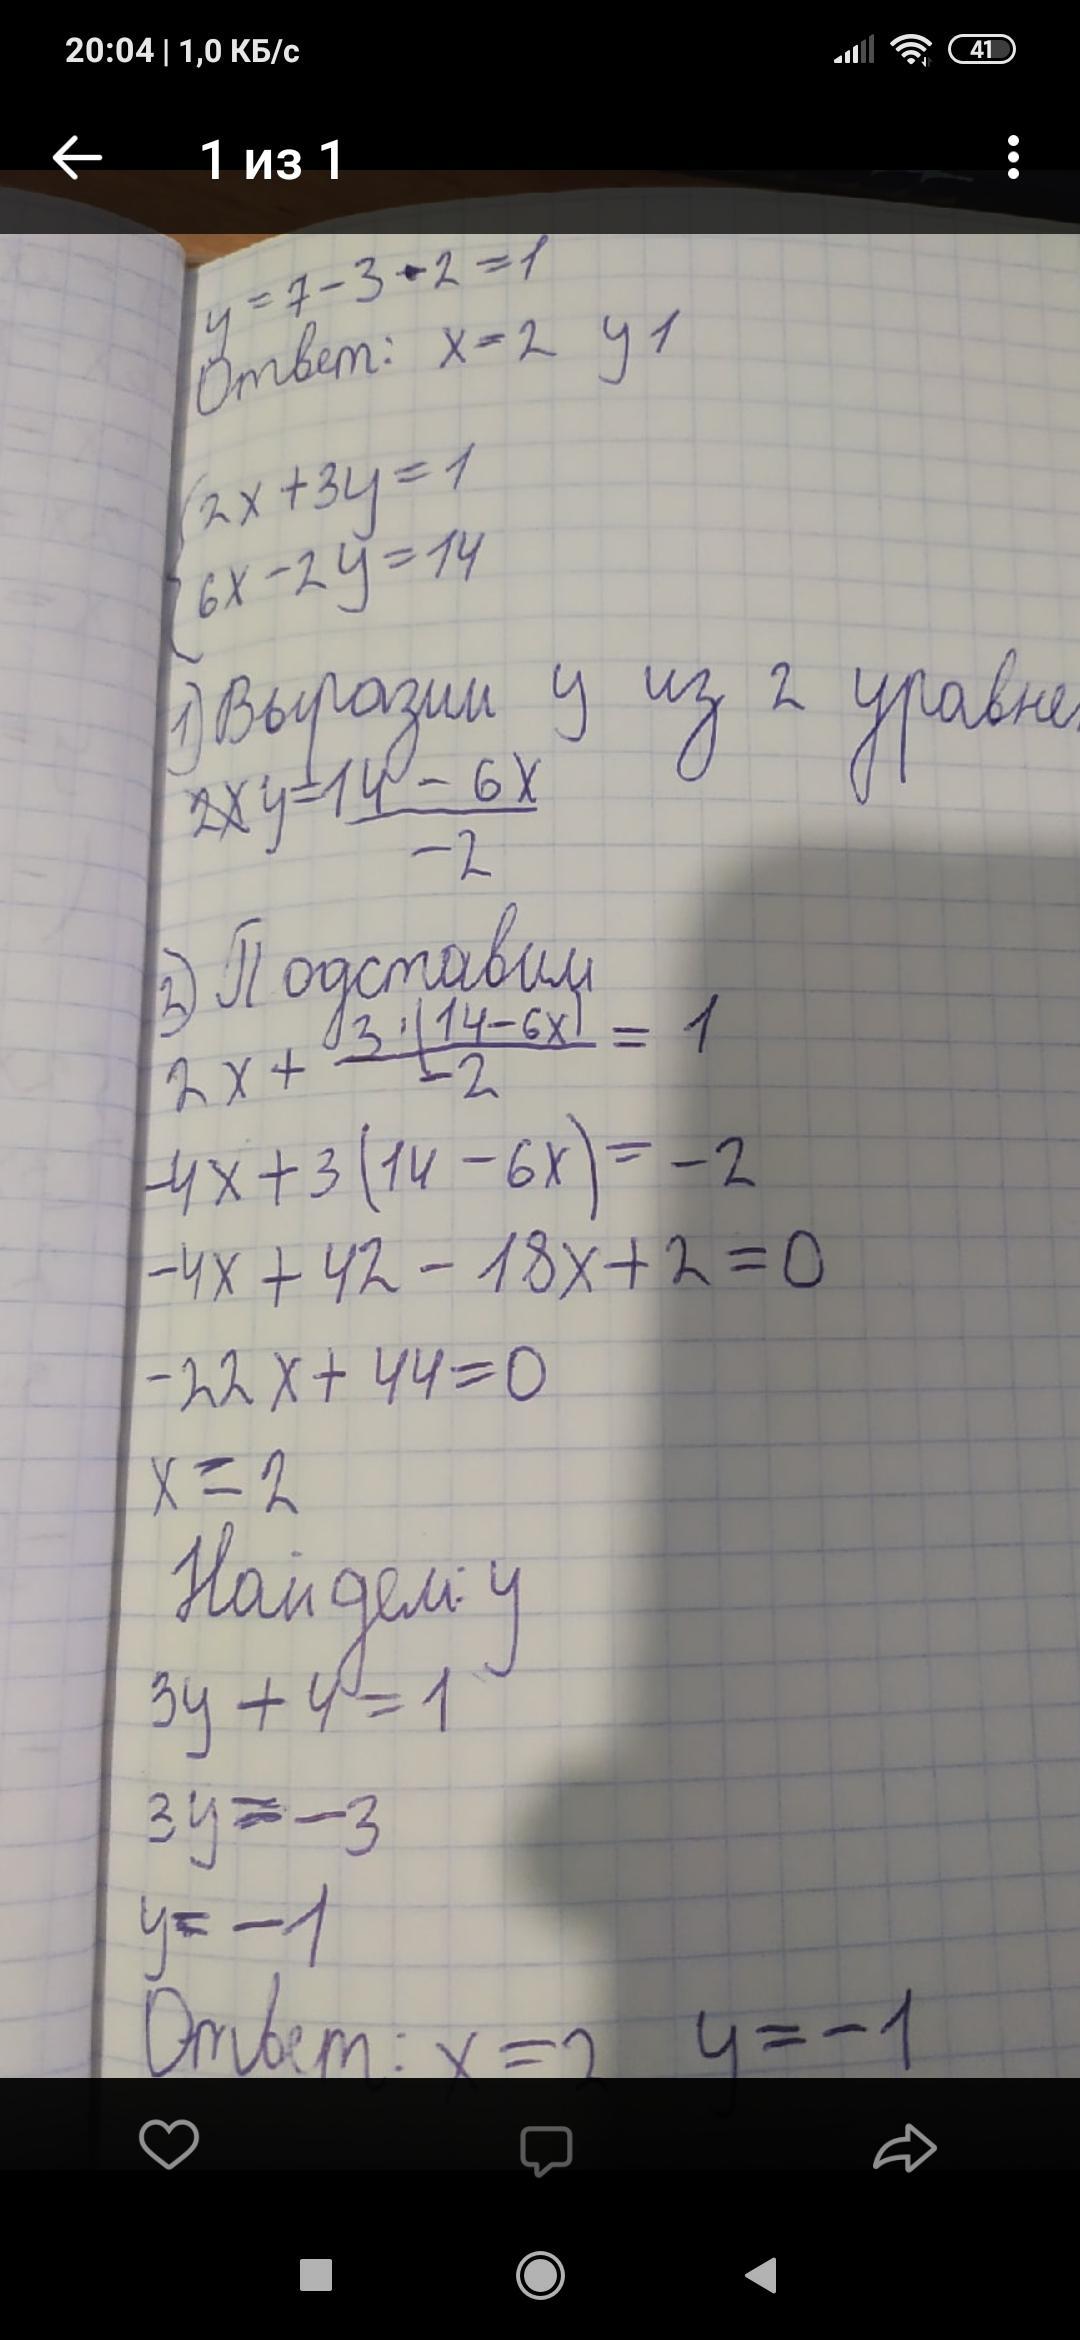 20:04 | 1,0 КБ/с
41
1 из 1
y = 7 - 3 · 2 = 1
Ответ: x = 2 y 1
2x + 3y = 1
6x - 2y = 14
1) Выразим y из 2 уравне
y = 14 - 6x
-2
2) Подставим
3 · (14 - 6x)
2x + = 1
-2
-4x + 3(14 - 6x) = -2
-4x + 42 - 18x + 2 = 0
-22x + 44 = 0
x = 2
Найдем: y
3y + 4 = 1
3y = -3
y = -1
Ответ: x = 2 y = -1